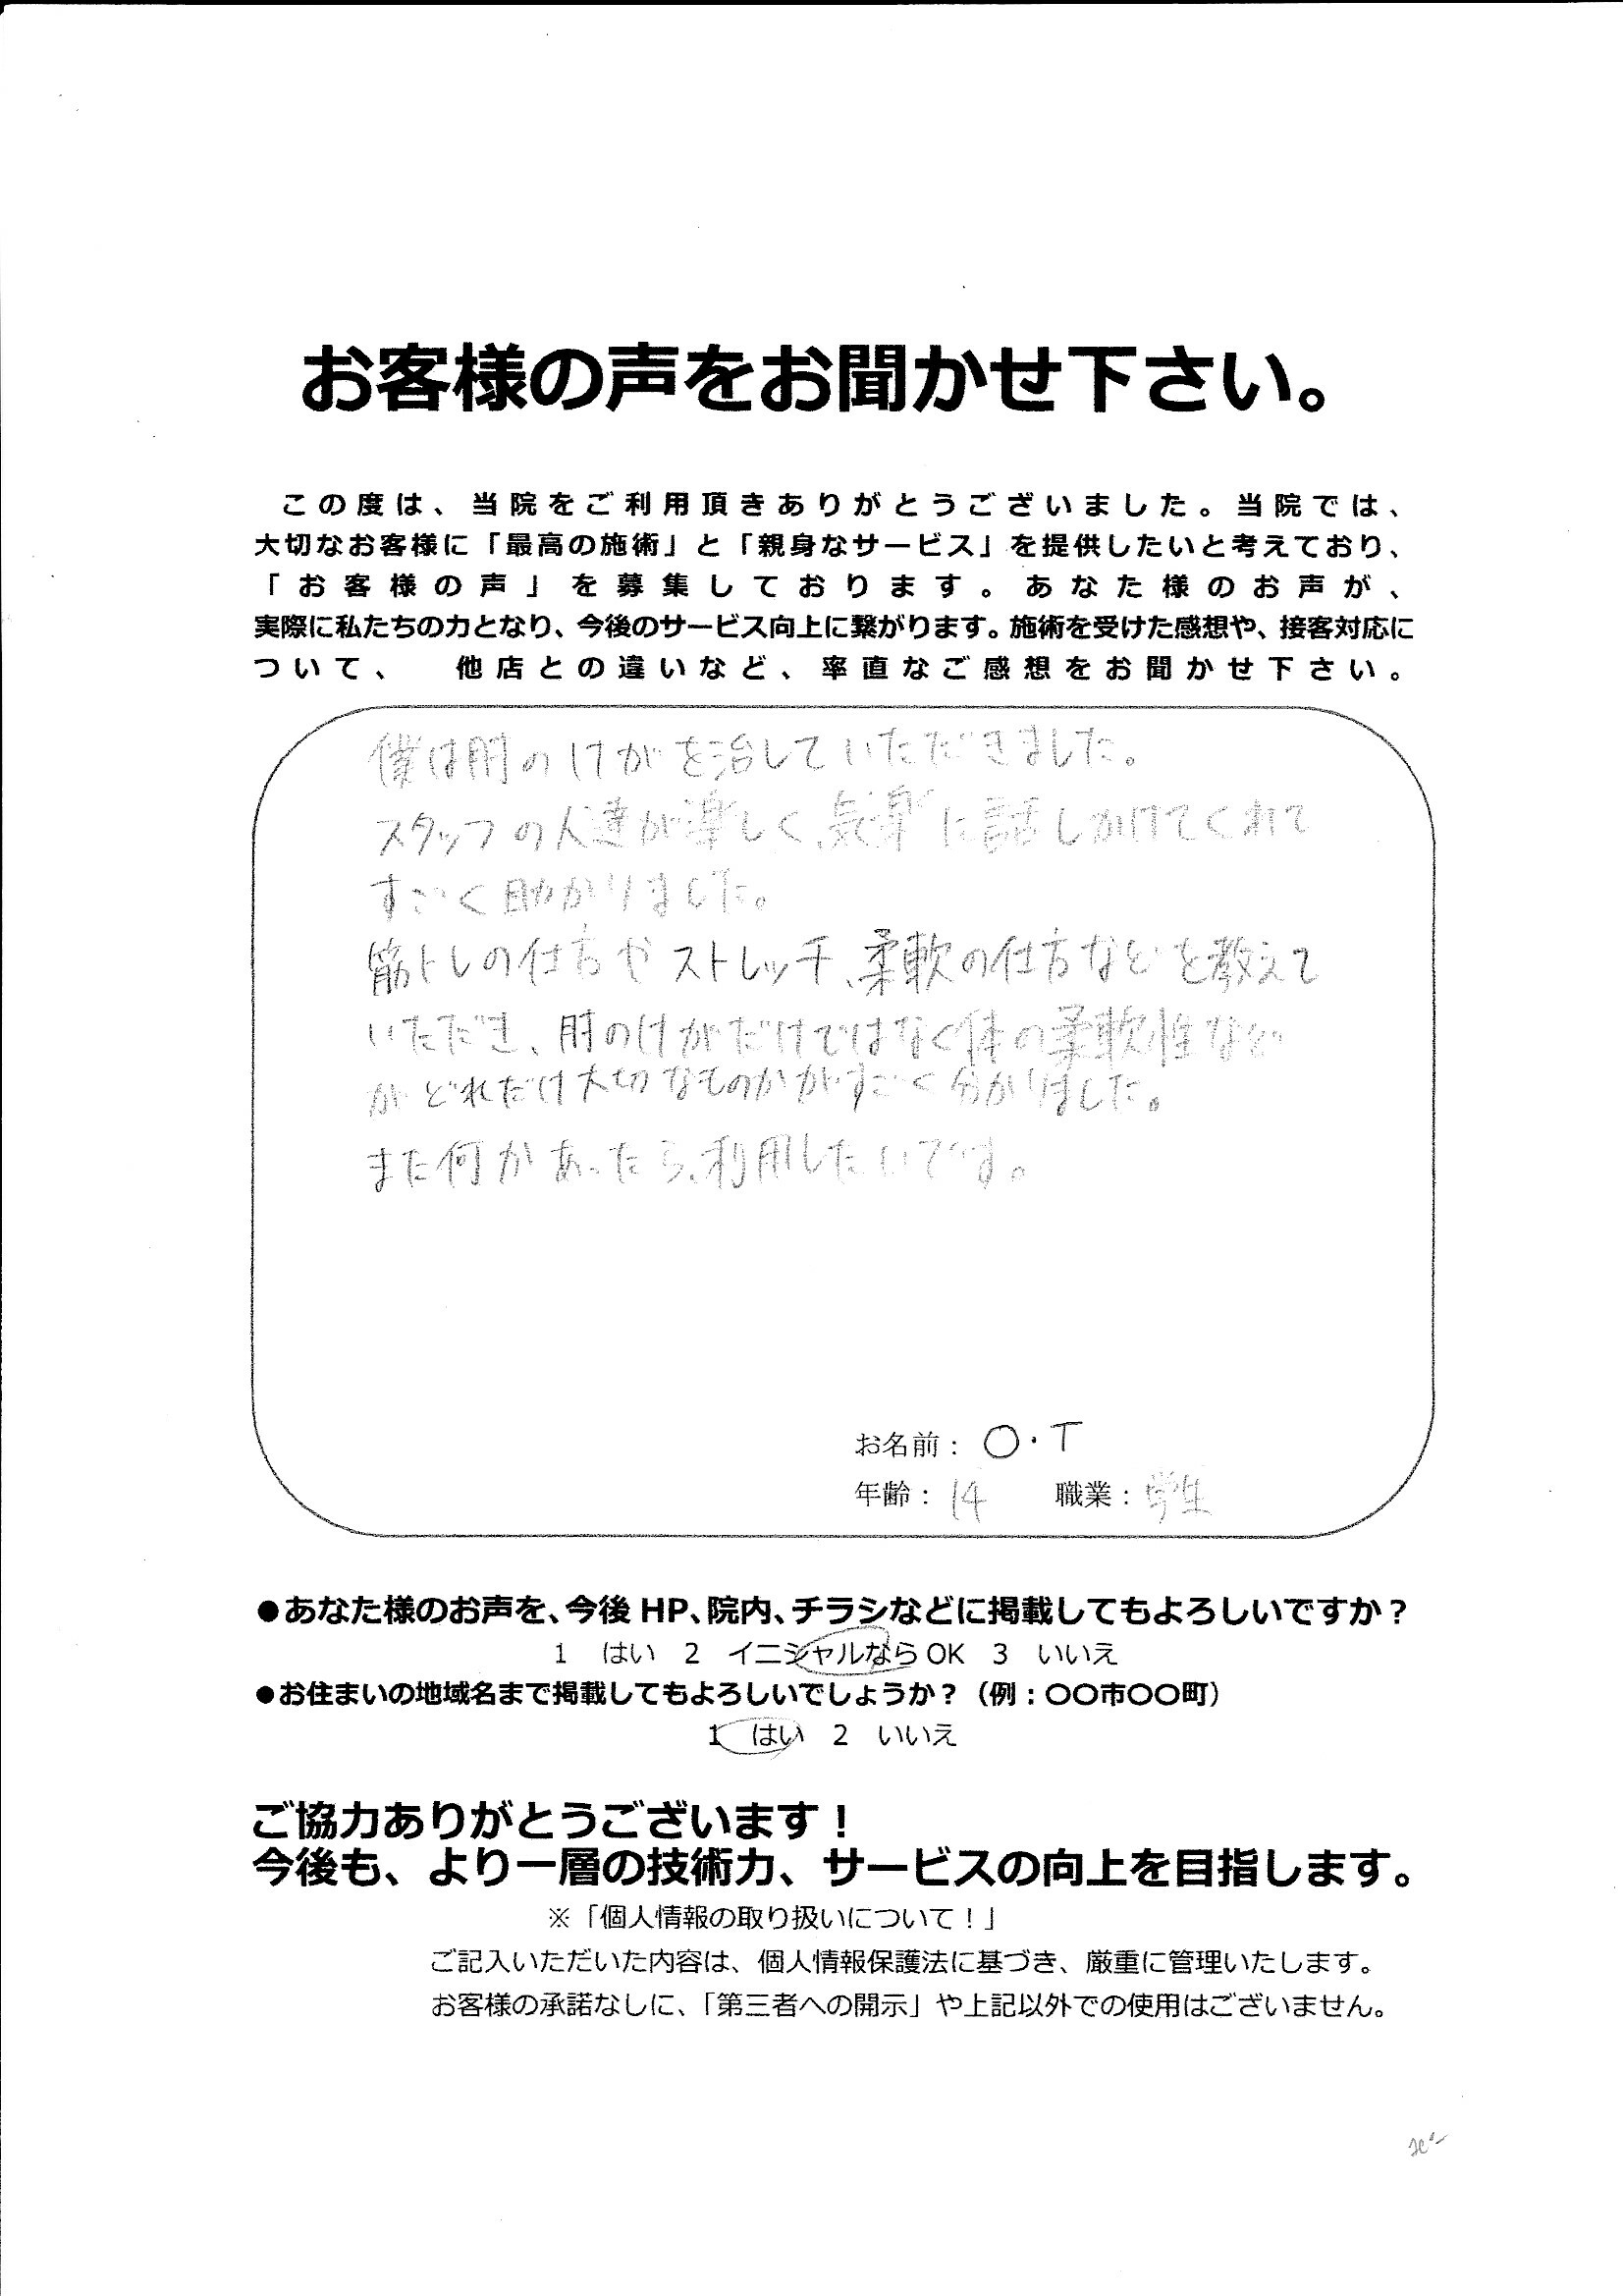 お客様の声をお聞かせ下さい。
この度は、当院をご利用頂きありがとうございました。当院では、
大切なお客様に「最高の施術」と「親身なサービス」を提供したいと考えており、
「お客様の声」を募集しております。あなた様のお声が、
実際に私たちの力となり、今後のサービス向上に繋がります。施術を受けた感想や、接客対応に
ついて、　他店との違いなど、率直なご感想をお聞かせ下さい。
僕は肘のけがを治していただきました。
スタッフの人達が楽しく、気楽に話しかけてくれて
すごく助かりました。
筋トレの仕方やストレッチ、柔軟の仕方などを教えて
いただき、肘のけがだけではなく体の柔軟性など
がどれだけ大切なものかがすごく分かりました。
また何かあったら、利用したいです。
お名前：O・T
年齢：14　職業：学生
●あなた様のお声を、今後 HP、院内、チラシなどに掲載してもよろしいですか？
1　はい　2　イニシャルなら OK　3　いいえ
●お住まいの地域名まで掲載してもよろしいでしょうか？（例：〇〇市〇〇町）
1　はい　2　いいえ
ご協力ありがとうございます！
今後も、より一層の技術力、サービスの向上を目指します。
※「個人情報の取り扱いについて！」
ご記入いただいた内容は、個人情報保護法に基づき、厳重に管理いたします。
お客様の承諾なしに、「第三者への開示」や上記以外での使用はございません。